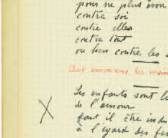 pour ne plus avoir
contre soi
contre elles
contre tout
ou bien contre les
les enfants sont l
de l'amour
faut il être ind
à l'égard des f